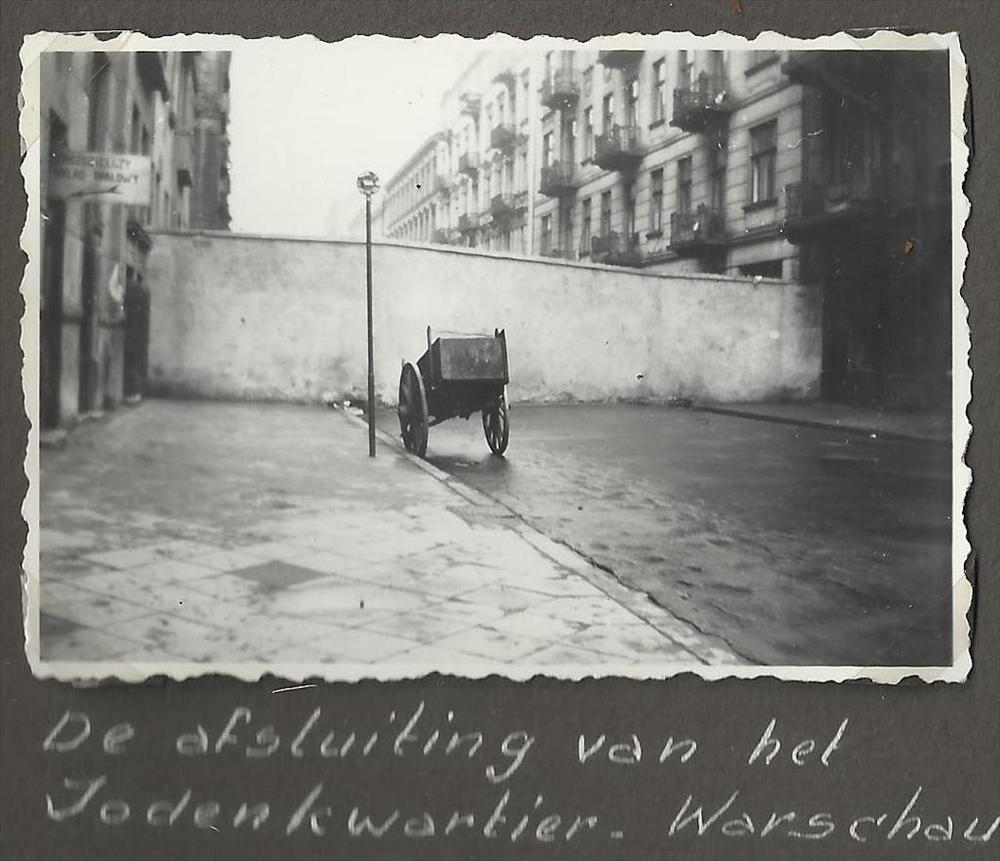 De afsluiting van het
Jodenkwartier. Warschau